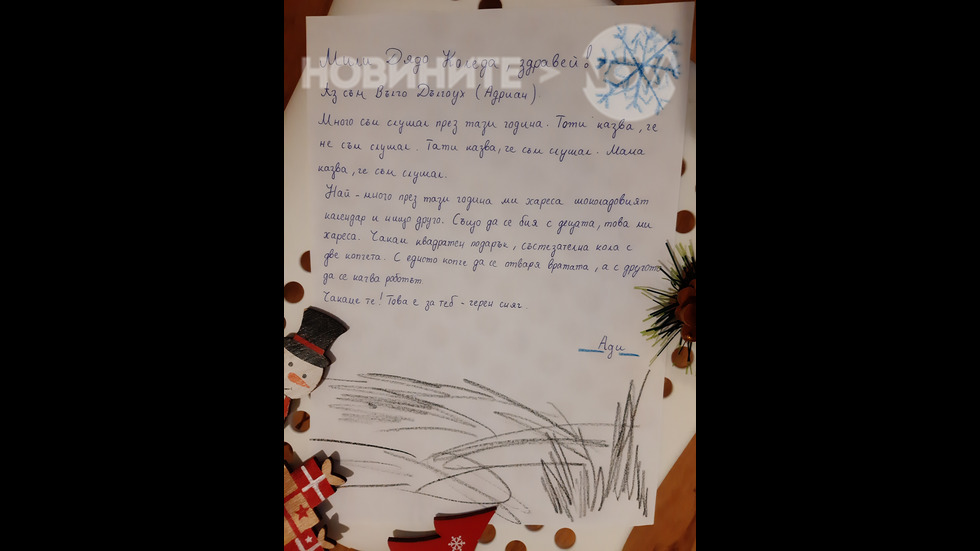 Мили Дядо Коледа, здравей!
НОВИНИТЕ > NOVA
Аз съм Вълчо Дългоух (Адриан)
Много съм слушал през тази година. Тоти казва, че
не съм слушал. Тати казва, че съм слушал. Мама
казва, че съм слушал.
Най-много през тази година ми хареса шоколадовият
календар и нищо друго. Също да се бия с децата, това ми
хареса. Чакам квадратен подарък, състезателна кола с
две копчета. С едното копче да се отваря вратата, а с другото
да се качва роботът.
Чакаме те! Това е за теб - черен сняг.
Ади